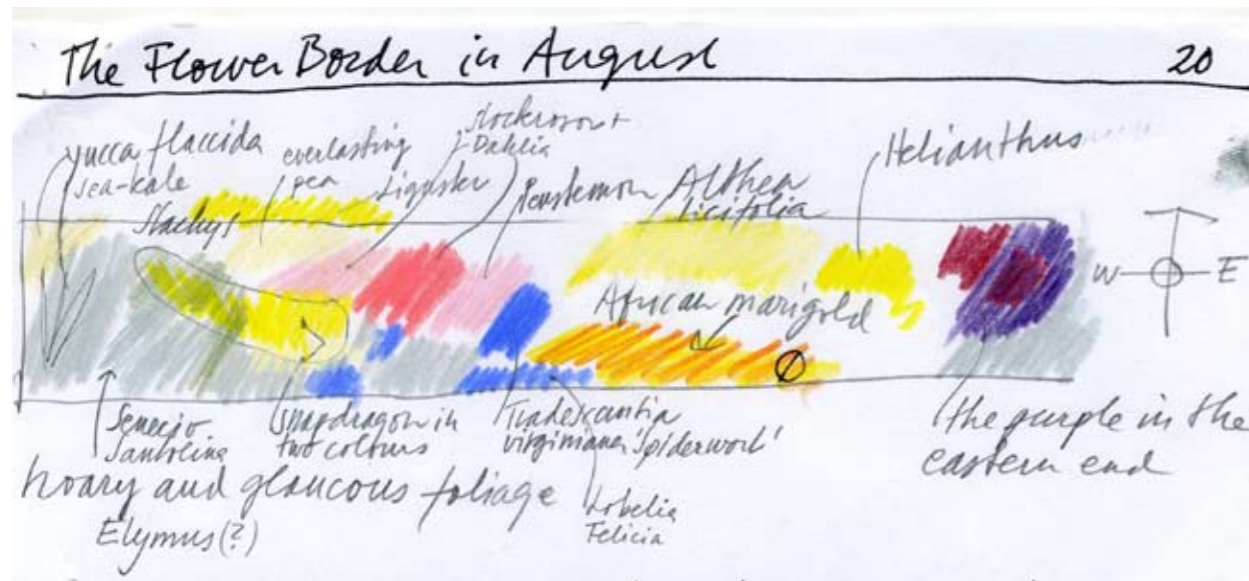 The Flower Border in August 20
Yucca flaccida
sea-kale
Stachys
everlasting
pea
Liguster
Stockrosor +
Dahlia
Penstemon
Althea
ficifolia
Helianthus
African marigold
W E
Senecio
Santolina
Snapdragon in
two colours
Tradescantia
virginiana 'spiderwort'
the purple in the
eastern end
hoary and glaucous foliage
Elymus (?)
Lobelia
Felicia